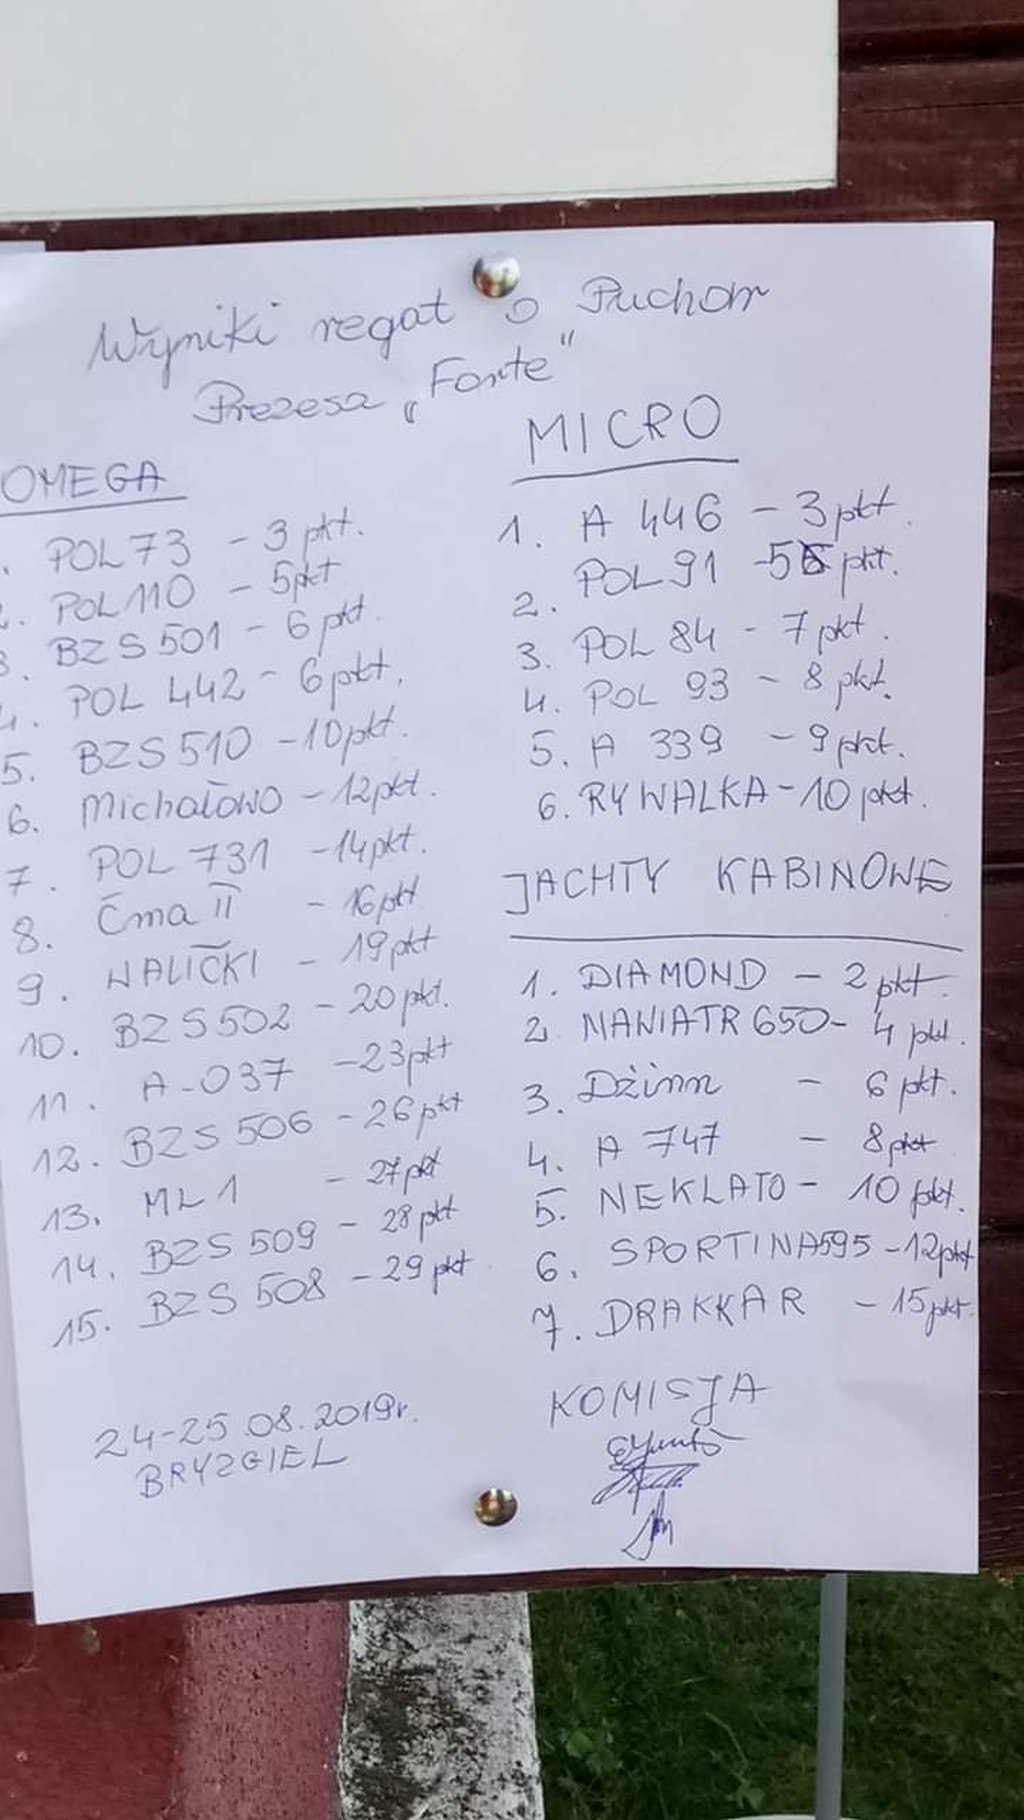 Wyniki regat o Puchar
Prezesa „Forte"
OMEGA
1. POL 73 - 3 pkt.
2. POL 110 - 5pkt
3. BZS 501 - 6 pkt.
4. POL 442 - 6pkt.
5. BZS 510 - 10pkt.
6. Michałowo - 12pkt.
7. POL 731 - 14pkt.
8. Ćma II - 16pkt
9. WALICKI - 19pkt
10. BZS 502 - 20pkt.
11. A-037 - 23pkt
12. BZS 506 - 26pkt
13. ML 1 - 27pkt
14. BZS 509 - 28pkt
15. BZS 508 - 29pkt
24-25.08.2019r.
BRYZGIEL
MICRO
1. A 446 - 3pkt.
2. POL 91 - 5 pkt.
3. POL 84 - 7pkt.
4. POL 93 - 8 pkt.
5. A 339 - 9pkt.
6. RYWALKA - 10 pkt.
JACHTY KABINOWE
1. DIAMOND - 2pkt.
2. MANIATR 650 - 4 pkt.
3. Dżinn - 6 pkt.
4. A 747 - 8pkt
5. NEKLATO - 10 pkt.
6. SPORTINA595 - 12pkt
7. DRAKKAR - 15pkt.
KOMISJA